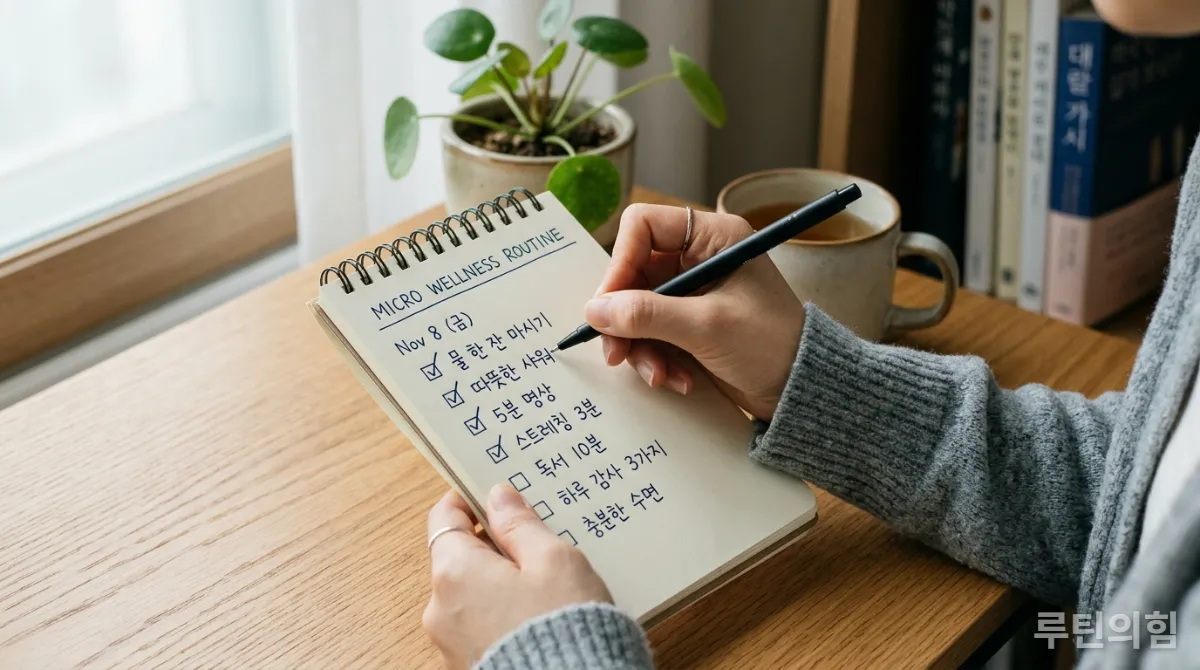 MICRO WELLNESS ROUTINE
Nov 8 (금)
물 한 잔 마시기
따뜻한 샤워
5분 명상
스트레칭 3분
독서 10분
하루 감사 3가지
충분한 수면
루틴의힘